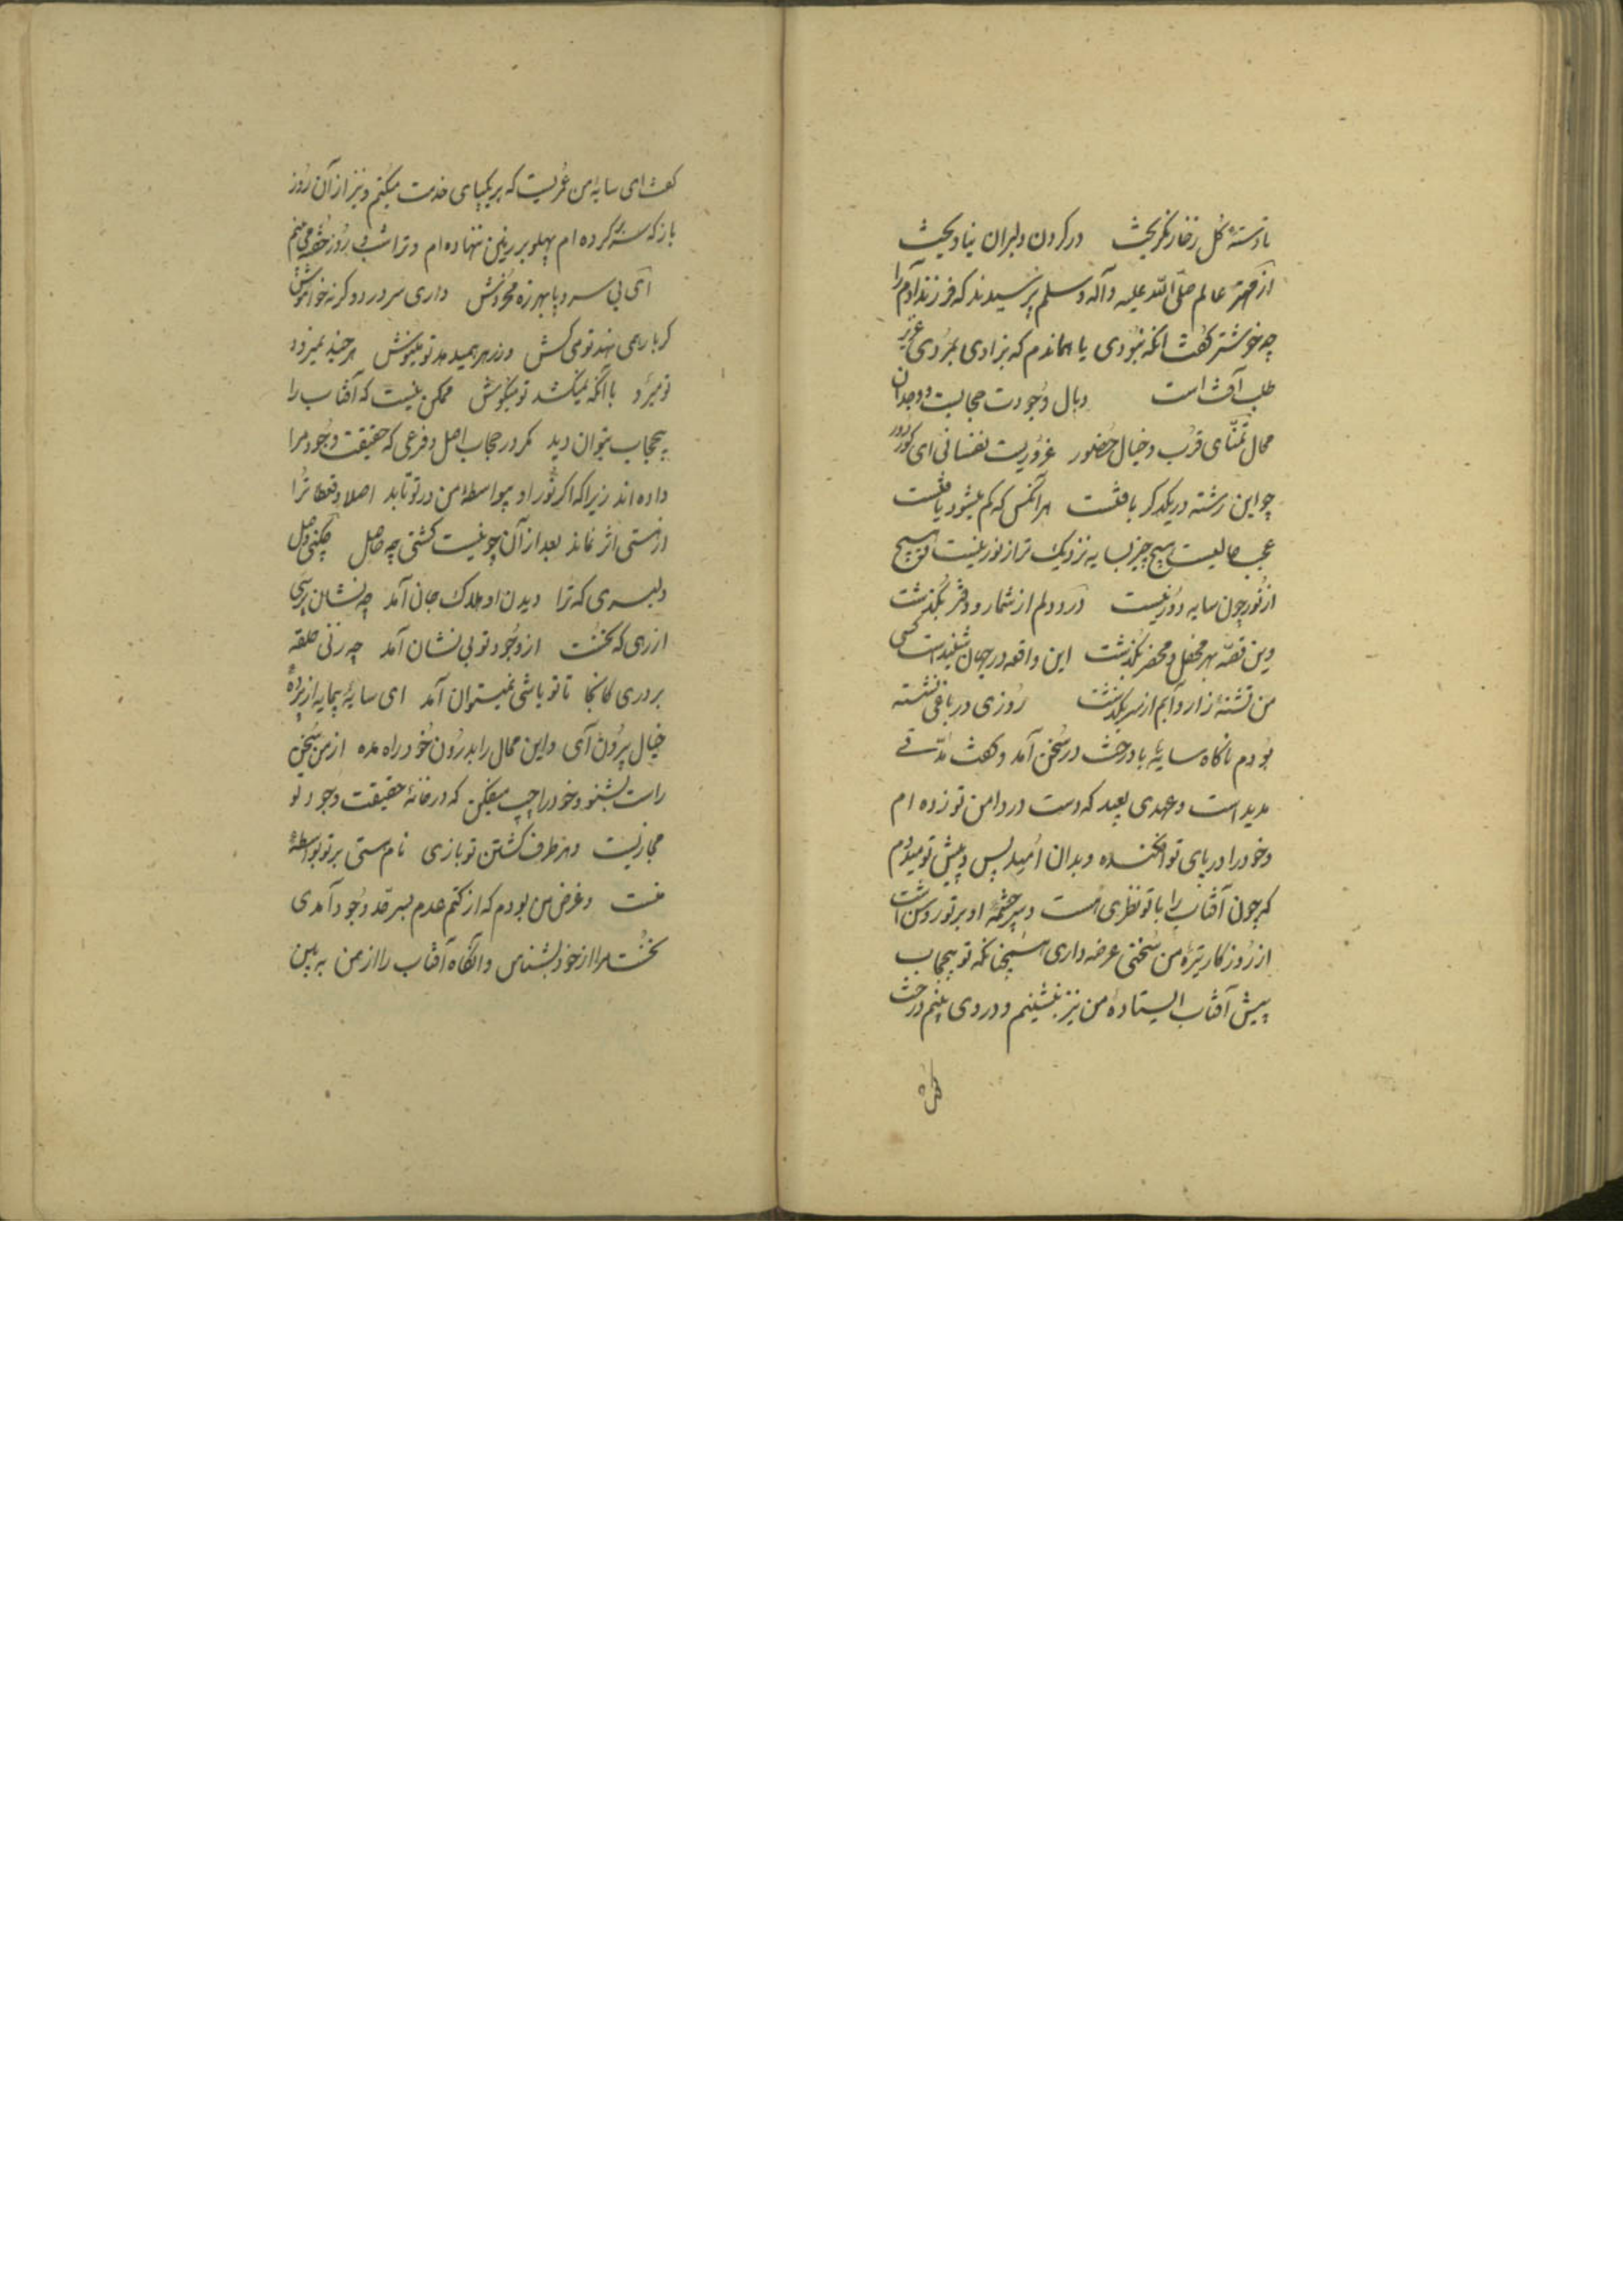 تا دستهٔ گل ز خار نگریخت در گردن دلبران نیاویخت
از مهتر عالم صلّی اللّه علیه و آله و سلم پرسیدند که فرزند آدم را
چه خوشتر گفت آنکه نبودی یا هماندم که بزادی بمردی عزیز
طلب آفت است وبال وجودت حجابیست وجدان
محال تمنّای قرب و خیال حضور غروریست نفسانی ای کور دور
چو این رشته در یکدگر بافتست هر آنکس که گم میشود یافتست
عجب حالیست هیچ چیز بسایه نزدیک تر از نور نیست و هیچ
از نور چون سایه دور نیست درد دلم از شمار و دفتر بگذشت
وین قصّه بهر محفل و محضر بگذشت این واقعه در جهان شنیدست کسی
من تشنهٔ زار و آبم از سر بگذشت روزی در باغی نشسته
بودم ناگاه سایهٔ با درخت در سخن آمد و گفت مدّتی
مدید است و عهدی بعید که دست در دامن تو زده ام
و خود را در پای تو افکنده و بدان امید پس و پیش تو میدوم
که چون آفتاب را با تو نظری است و سرچشمهٔ او بر تو روشن است
از روزگار تیرهٔ من سخنی عرضه داری همچنانکه تو بیحجاب
پیش آفتاب ایستادهٔ من نیز بنشینم و در وی بینم درخت
گفت
گفت ای سایه من عمریست که بر یکپای خدمت میکنم و نیز از آن روز
باز که سر بر کرده ام پهلو بر زمین ننهاده ام و ترا شب و روز خفته می بینم
ای بی سر و پا بهرزه مخروش داری سر درد و گرنه خاموش
گر بار همی نهد تو می کش ور زهر همیدهد تو مینوش هر چند نمیرود
تو میرو با آنکه نمیکشد تو میکوش ممکن نیست که آفتاب را
بیحجاب بتوان دید مگر در حجاب اصل و فرعی که حقیقت وجود مرا
داده اند زیرا که اگر نور او بیواسطهٔ من در تو تابد اصلا و قطعا ترا
از هستی اثر نماند بعد از آن چو نیست گشتی چه حاصل چکنی وصل
دلبری که ترا دیدن او هلاک جان آمد چه نشان پرسی
از رهی که نخست از وجود تو بی نشان آمد چه زنی حلقه
بر دری کانجا تا تو باشی نمیتوان آمد ای سایهٔ بیمایه از پردهٔ
خیال بیرون آی و این محال را بدرون خود راه مده از من سخن
راست بشنو و خود را چپ میفکن که در خانهٔ حقیقت وجود تو
مجازیست و هر طرف گشتن تو بازی نام هستی بر تو بواسطهٔ
منست و غرض من بودم که از کتم عدم بسر قد وجود آمدی
نخست مرا از خود بشناس و آنگاه آفتاب را از من به بین